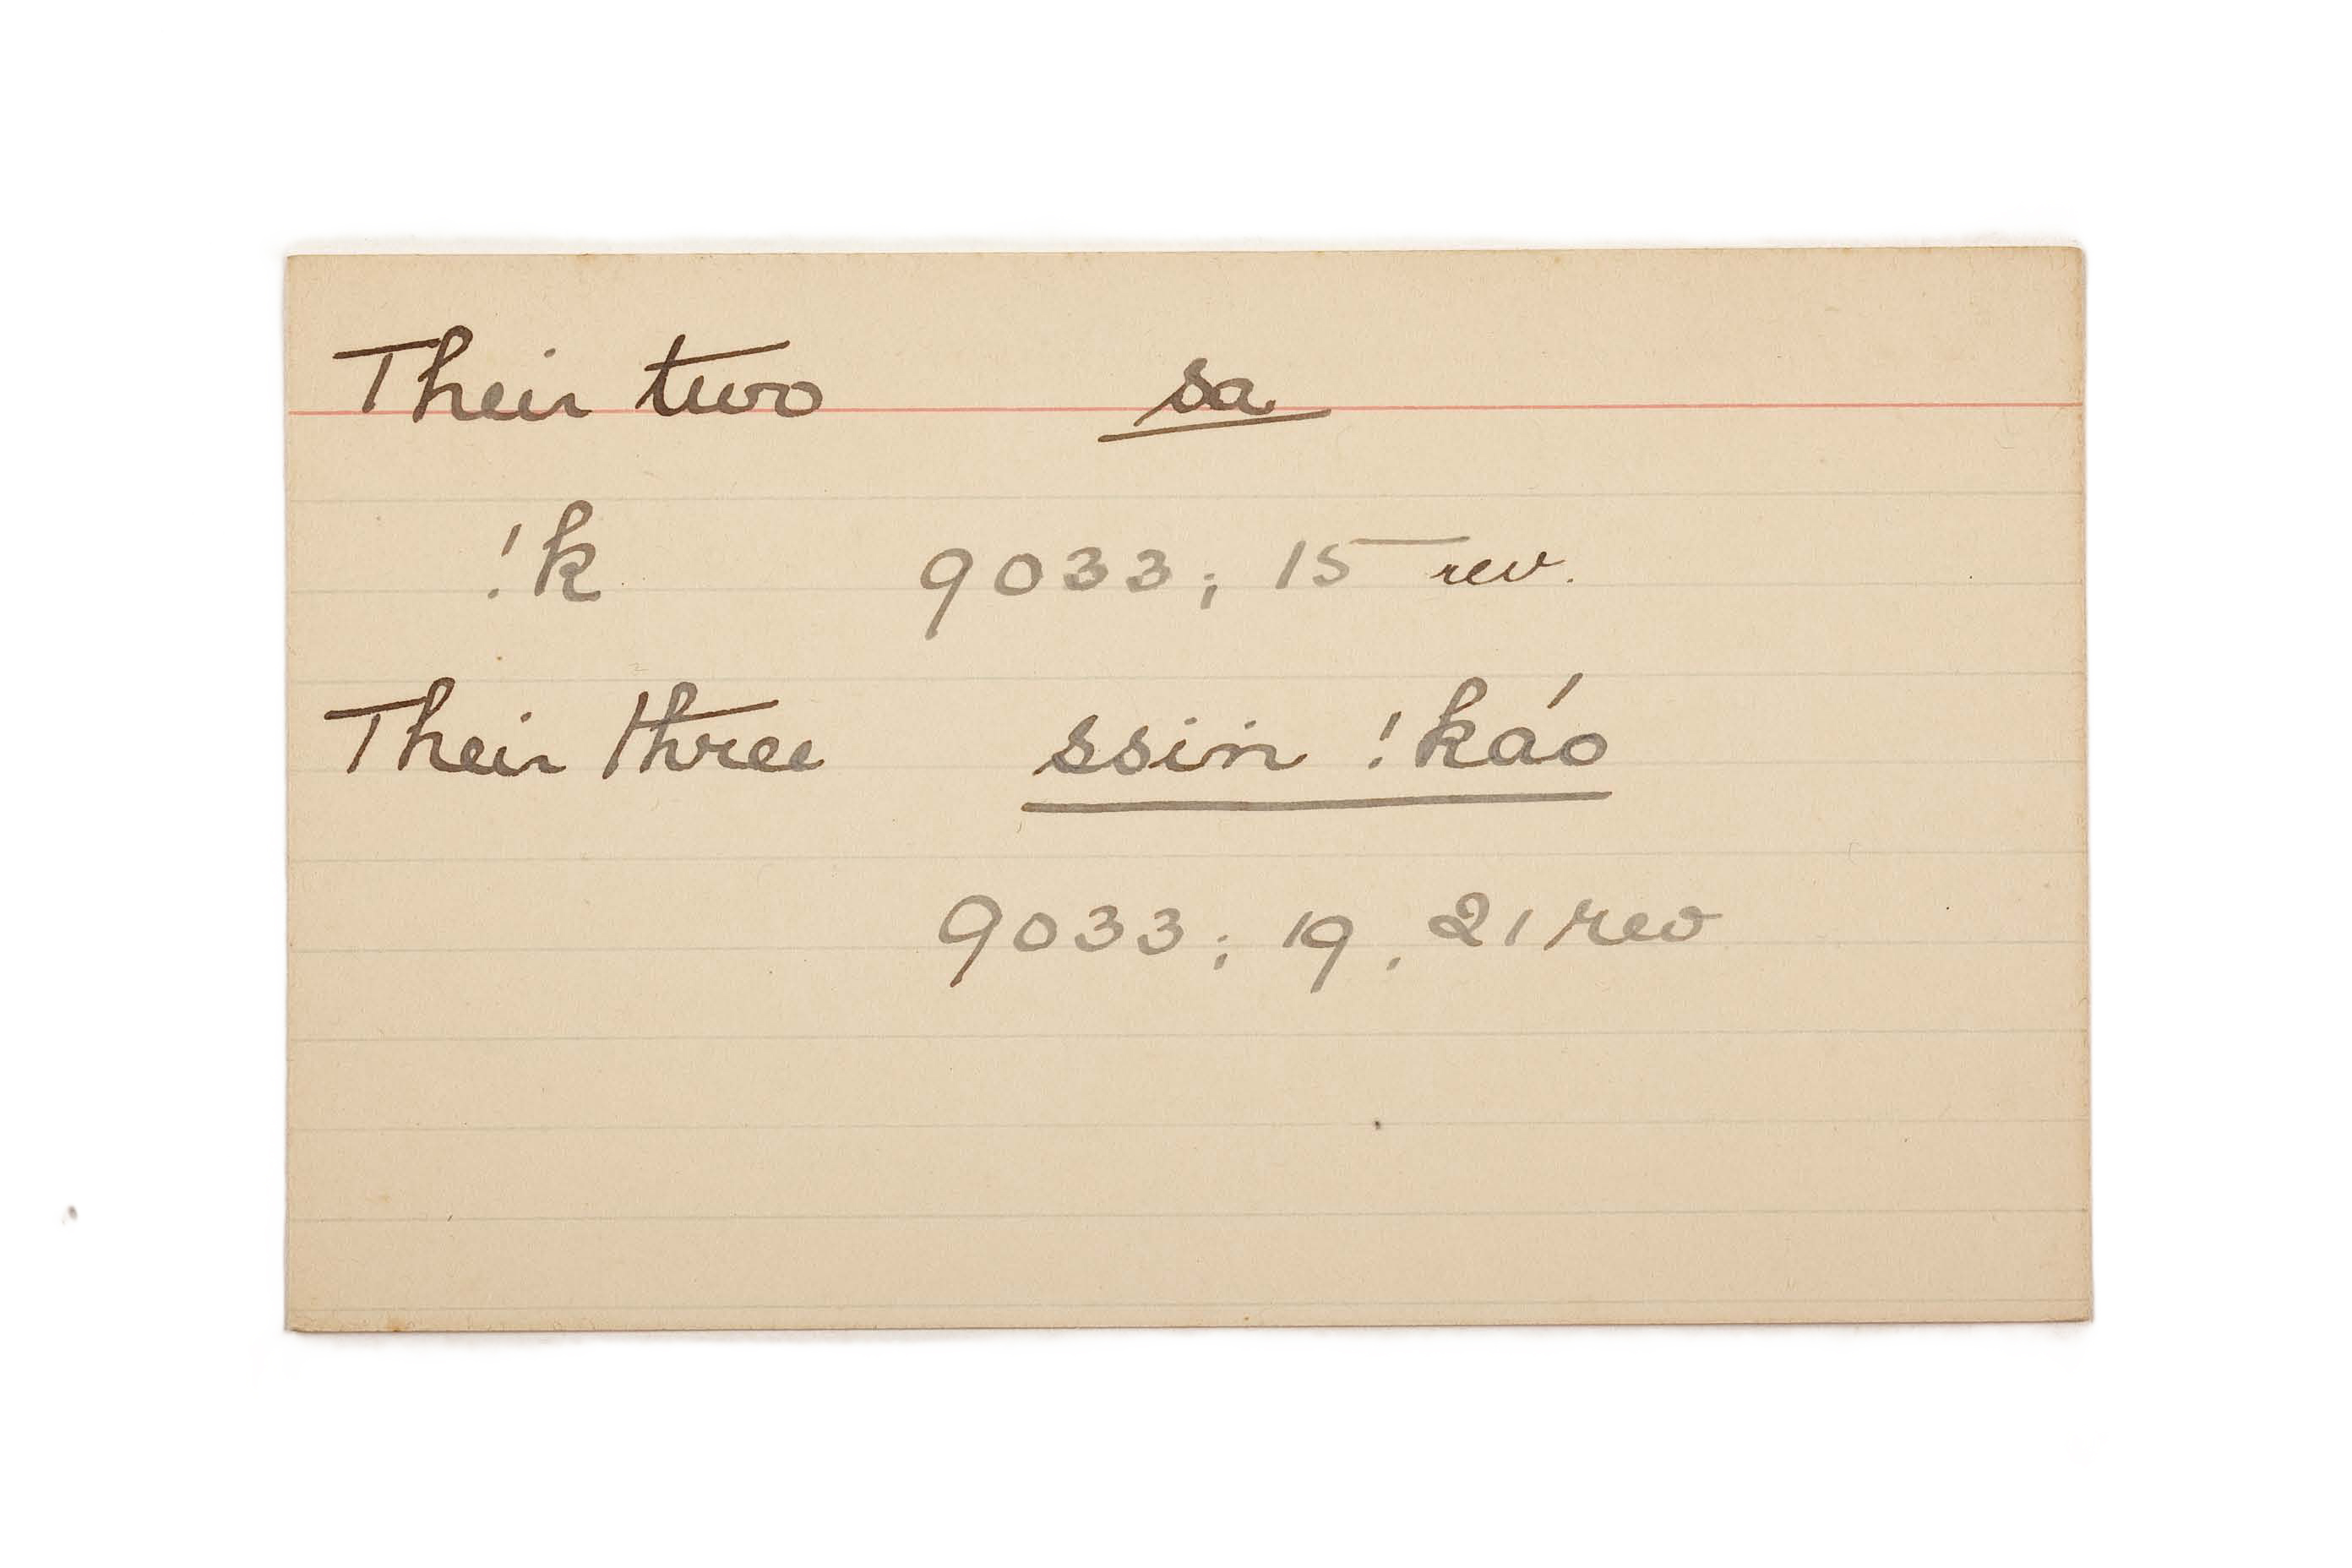 Their two sa
!k 9033; 15 rev.
Their three ssin !káo
9033; 19, 21 rev